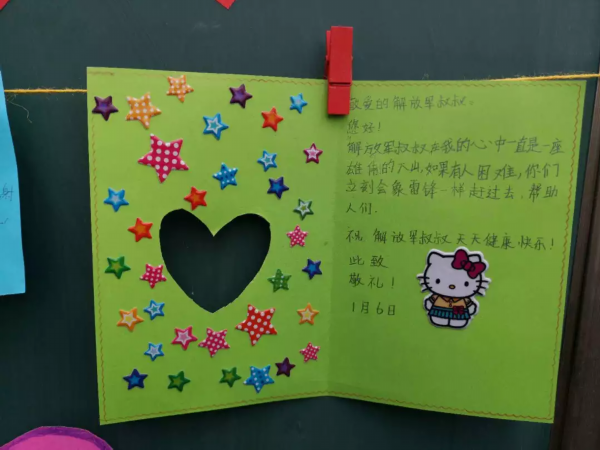 敬爱的解放军叔叔:
您好!
解放军叔叔在我的心中一直是一座
雄伟的大山,如果有人困难,你们
立刻会象雷锋一样赶过去,帮助
人们.
祝解放军叔叔天天健康、快乐!
此致
敬礼!
1月6日